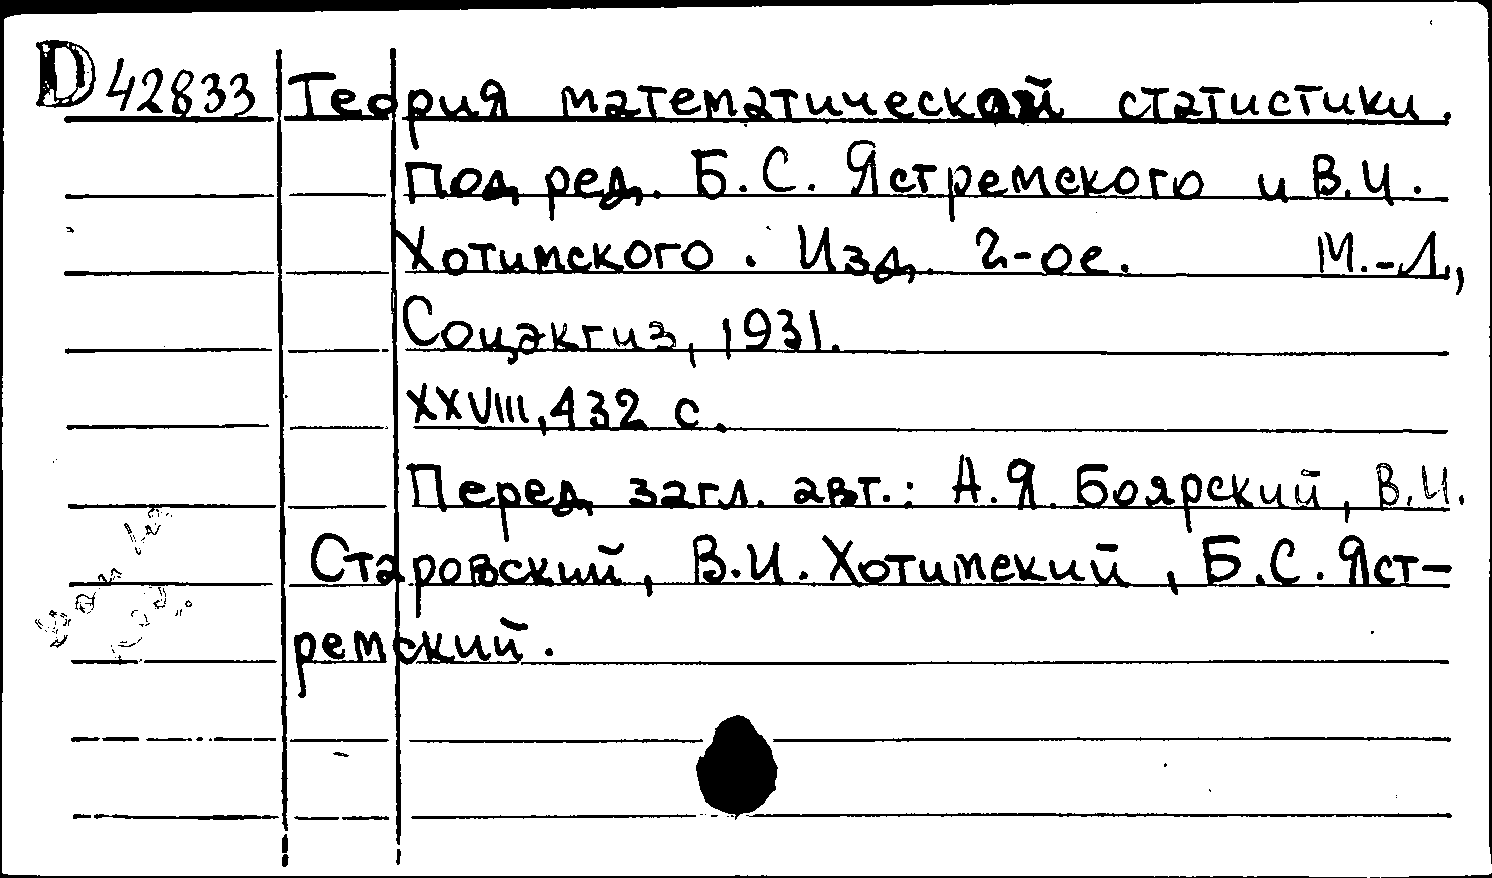 D 42833 Теория математической статистики.
Под ред. Б.С. Ястремского и В.И.
Хотимского. Изд. 2-ое. М.-Л,
Соцэкгиз, 1931.
XXVIII, 432 с.
Перед загл. авт.: А.Я. Боярский, В.И.
Старовский, В.И. Хотимский, Б.С. Яст-
ремский.